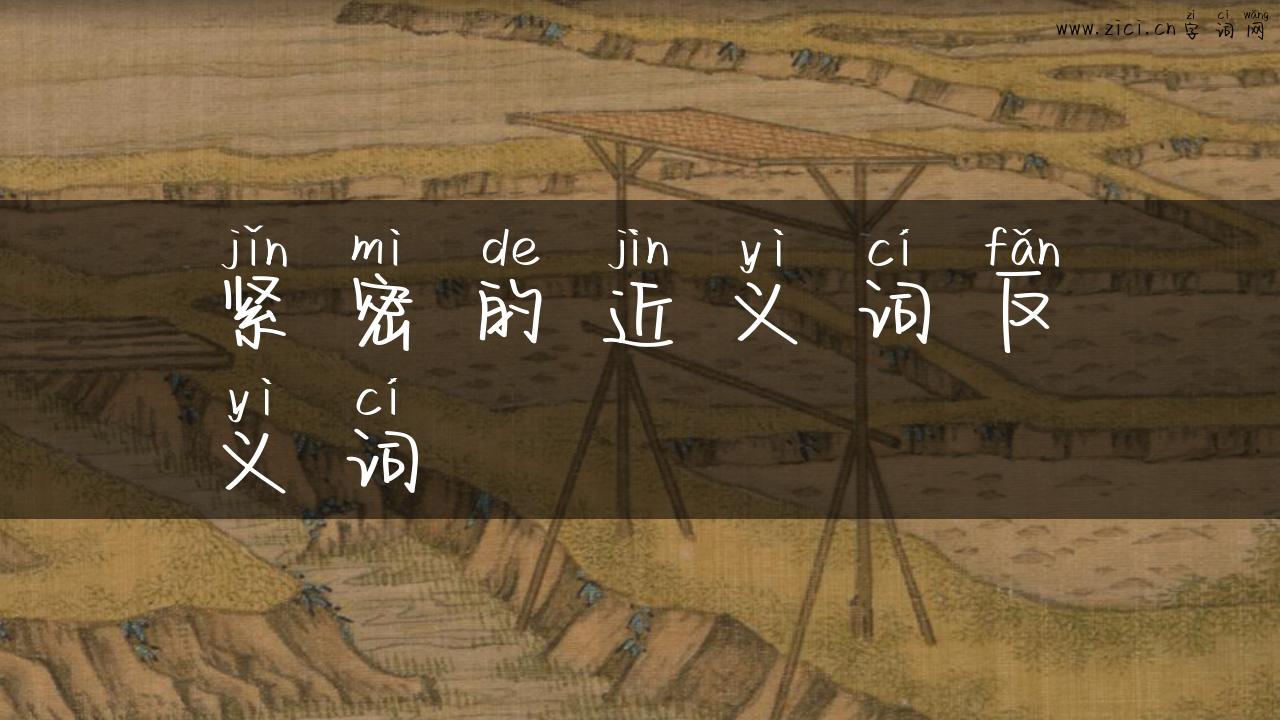 zì cí wǎng
www.zici.cn 字 词 网
jǐn mì de jìn yì cí fǎn
紧 密 的 近 义 词 反
yì cí
义 词